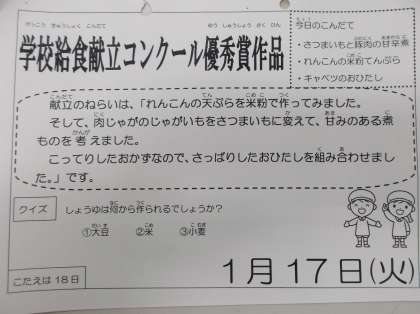 学校給食献立コンクール優秀賞作品
今日のこんだて
・さつまいもと豚肉の甘辛煮
・れんこんの米粉てんぷら
・キャベツのおひたし
献立のねらいは、「れんこんの天ぷらを米粉で作ってみました。
そして、肉じゃがのじゃがいもをさつまいもに変えて、甘みのある煮
ものを考えました。
こってりしたおかずなので、さっぱりしたおひたしを組み合わせまし
た。」です。
クイズ
しょうゆは何から作られるでしょうか？
①大豆 ②米 ③小麦
こたえは18日
1月17日(火)